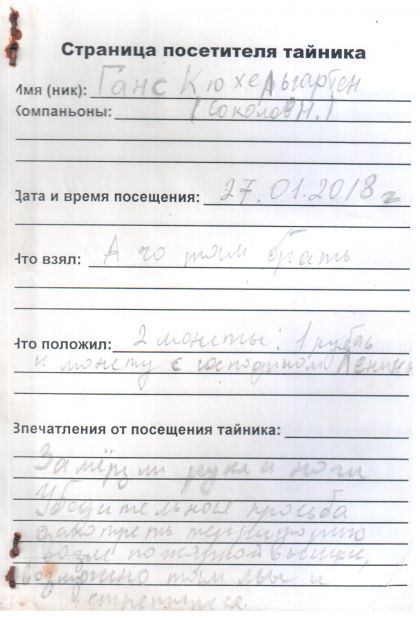 Страница посетителя тайника
Имя (ник): Ганс Кюхельгартен
Компаньоны: (Соколов Н.)
Дата и время посещения: 27.01.2018 г
Что взял: А чо там брать
Что положил: 2 монеты: 1 рубль
и монету с господином Лениным
Впечатления от посещения тайника:
Замёрзли руки и ноги
Убедительная просьба
территорию
возле пожарной вышки,
возможно там мы и
встретимся.